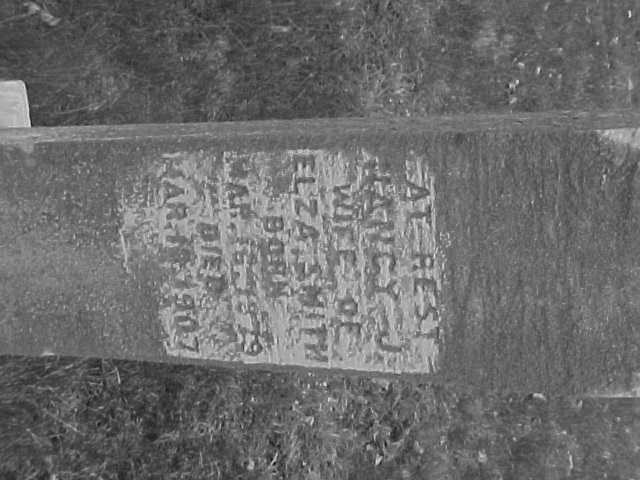 AT REST
NANCY J
WIFE OF
ELZA. SMITH
BORN
MAR. 15. 1879
DIED
MAR. 19. 1907